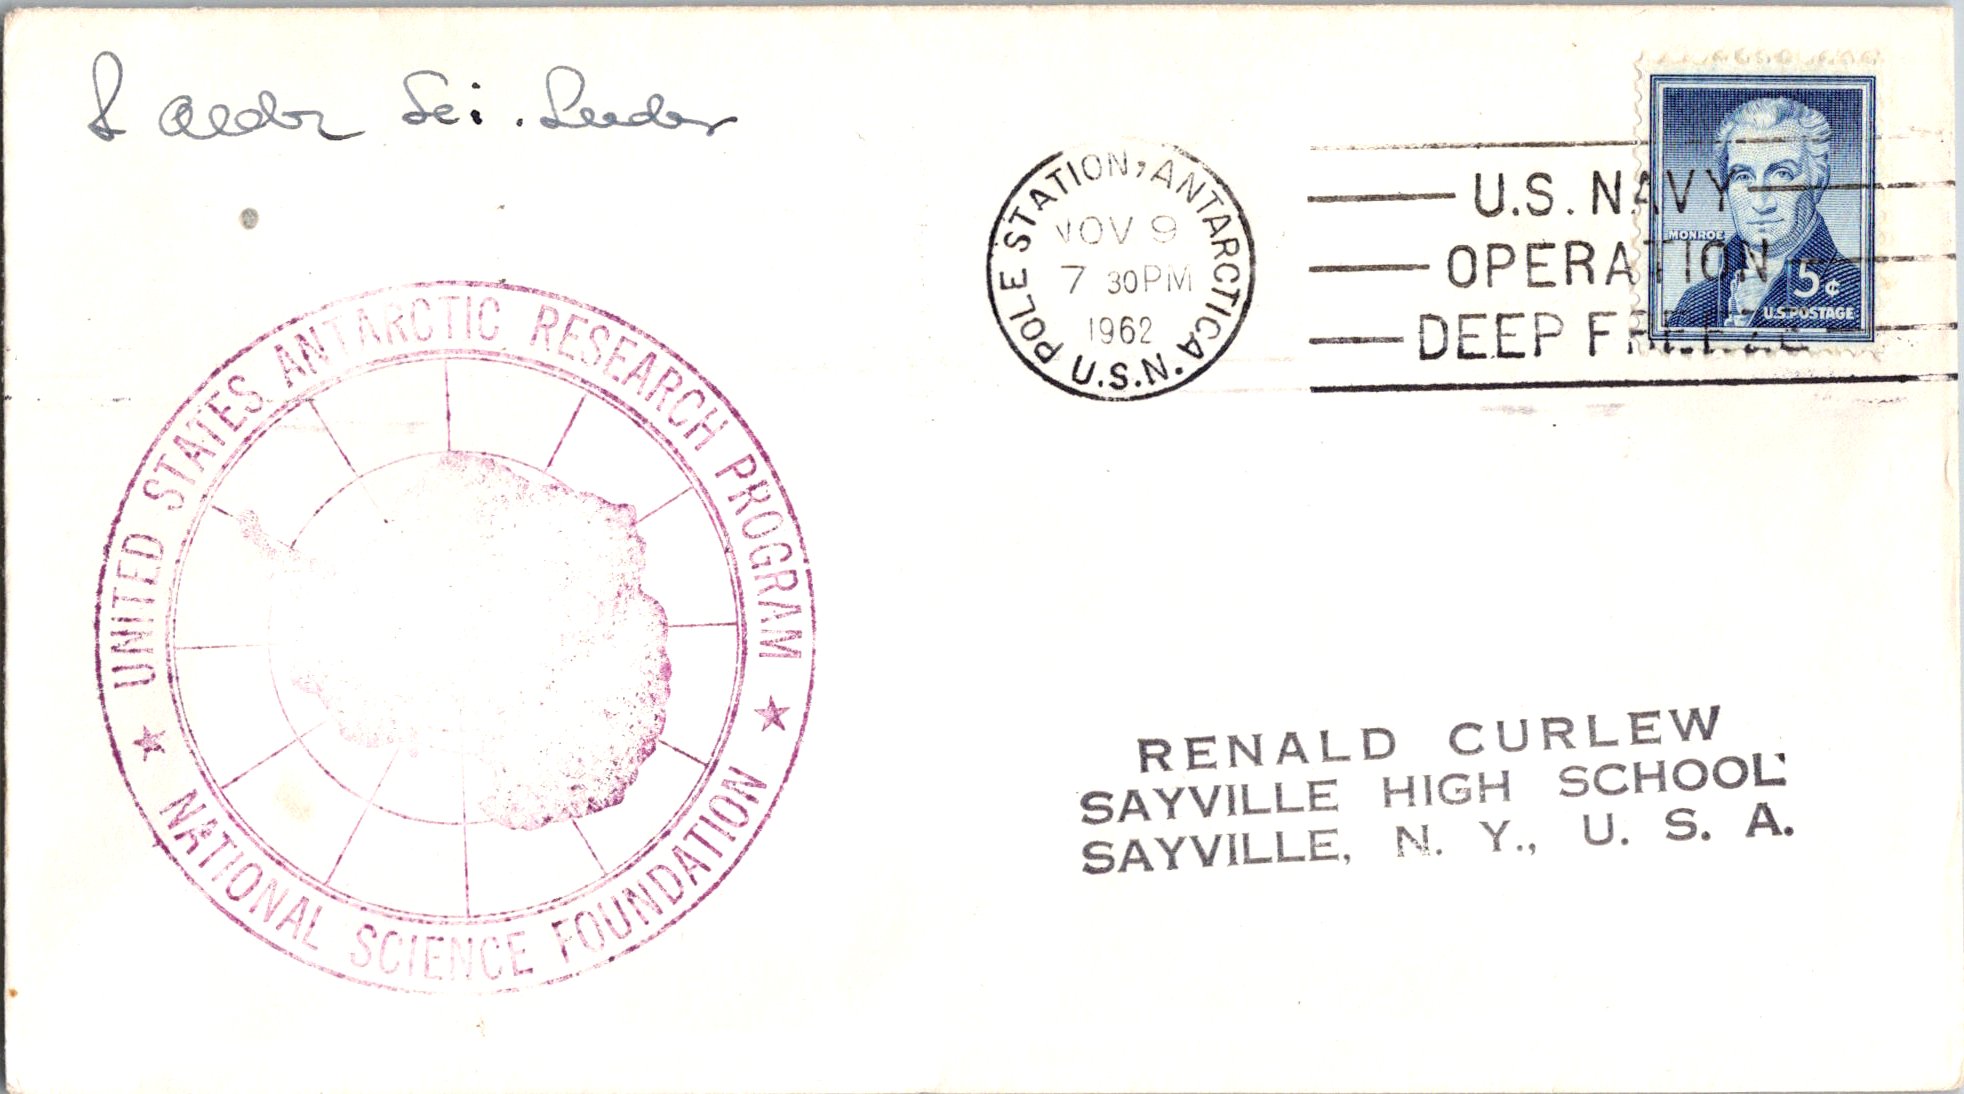 Sci. Leader
POLE STATION, ANTARCTICA
U.S.N.
NOV 9
7 30PM
1962
U.S. NAVY
OPERATION
DEEP FREEZE
MONROE
5¢
U.S. POSTAGE
UNITED STATES ANTARCTIC RESEARCH PROGRAM
NATIONAL SCIENCE FOUNDATION
RENALD CURLEW
SAYVILLE HIGH SCHOOL
SAYVILLE, N. Y., U. S. A.